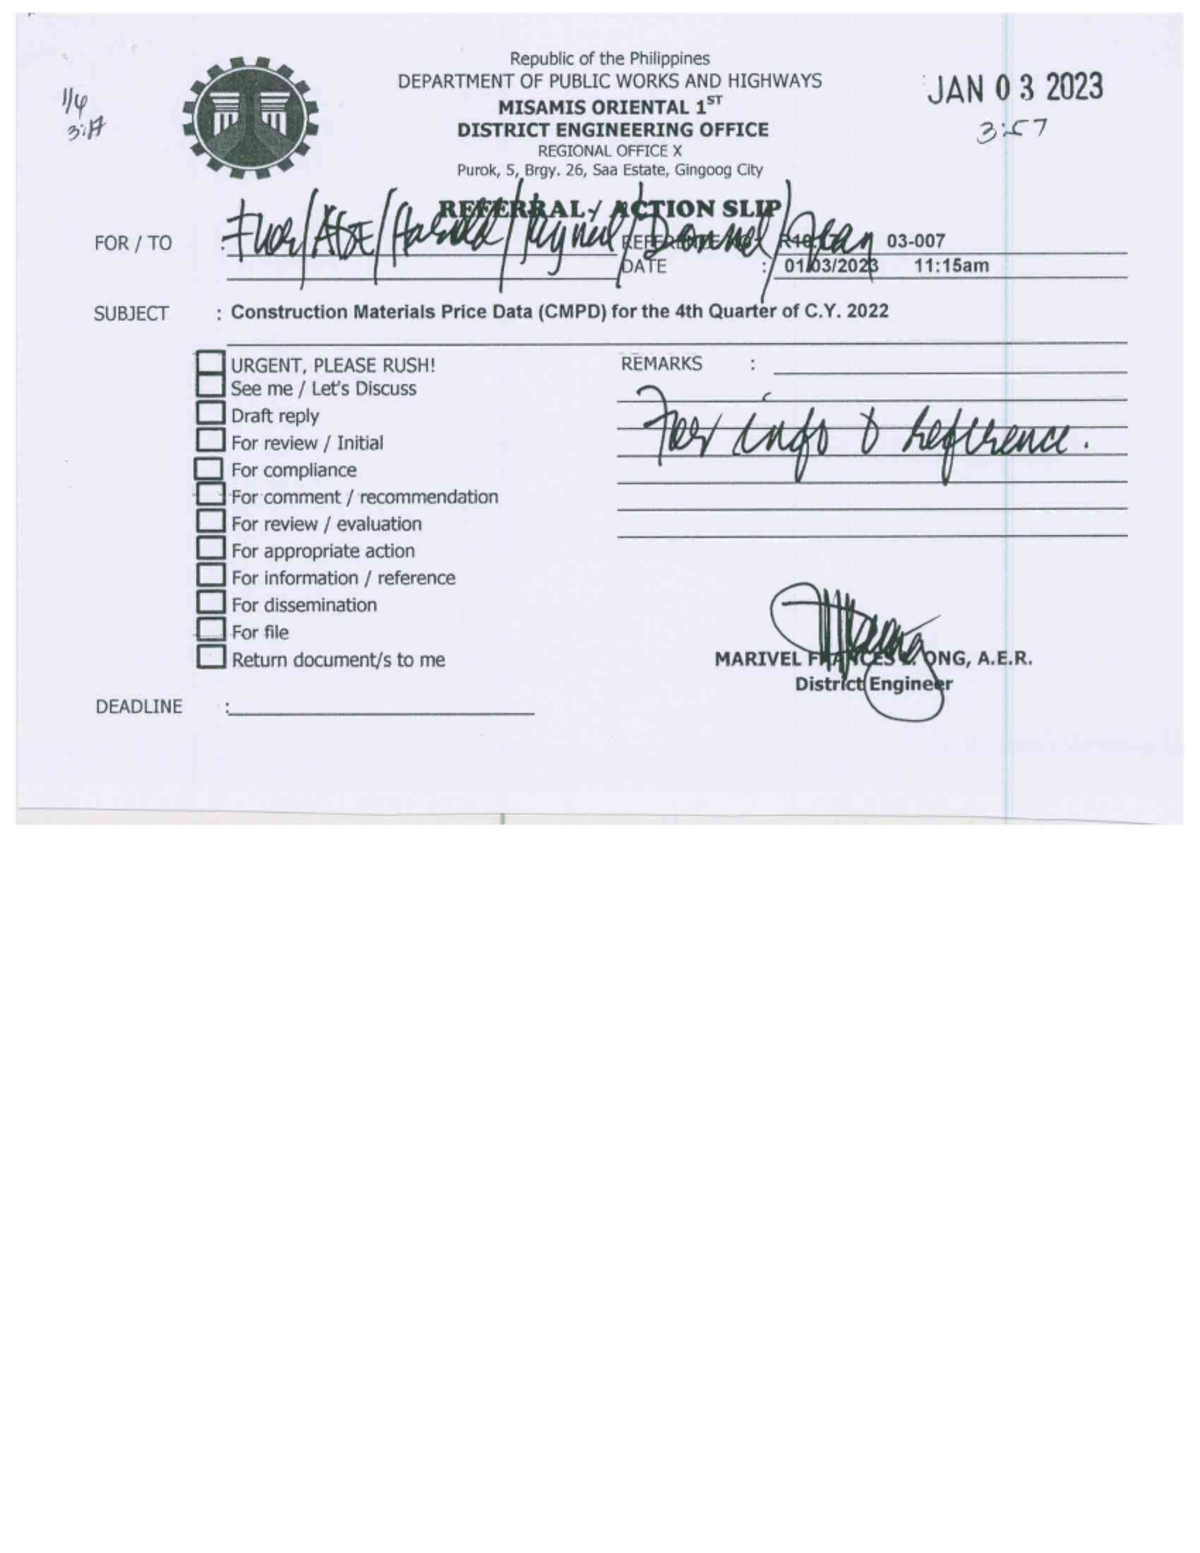 Republic of the Philippines
DEPARTMENT OF PUBLIC WORKS AND HIGHWAYS
MISAMIS ORIENTAL 1ST
DISTRICT ENGINEERING OFFICE
REGIONAL OFFICE X
Purok, 5, Brgy. 26, Saa Estate, Gingoog City
JAN 03 2023
3:57
1/4
3:17
REFERRAL / ACTION SLIP
FOR / TO : / Harold / Reynil / Donnel /
03-007
DATE : 01/03/2023 11:15am
SUBJECT : Construction Materials Price Data (CMPD) for the 4th Quarter of C.Y. 2022
URGENT, PLEASE RUSH!
See me / Let's Discuss
Draft reply
For review / Initial
For compliance
For comment / recommendation
For review / evaluation
For appropriate action
For information / reference
For dissemination
For file
Return document/s to me
REMARKS :
For info & reference.
MARIVEL FRANCES ONG, A.E.R.
District Engineer
DEADLINE :